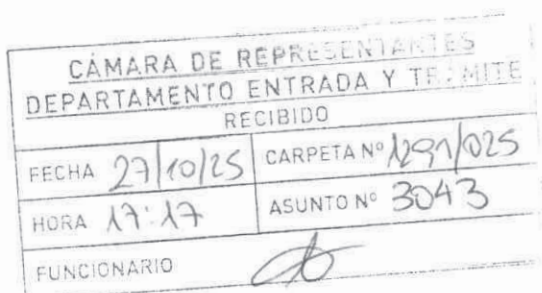 CÁMARA DE REPRESENTANTES
DEPARTAMENTO ENTRADA Y TRÁMITE
RECIBIDO
FECHA 27/10/25 CARPETA Nº 1291/025
HORA 17:17 ASUNTO Nº 3043
FUNCIONARIO